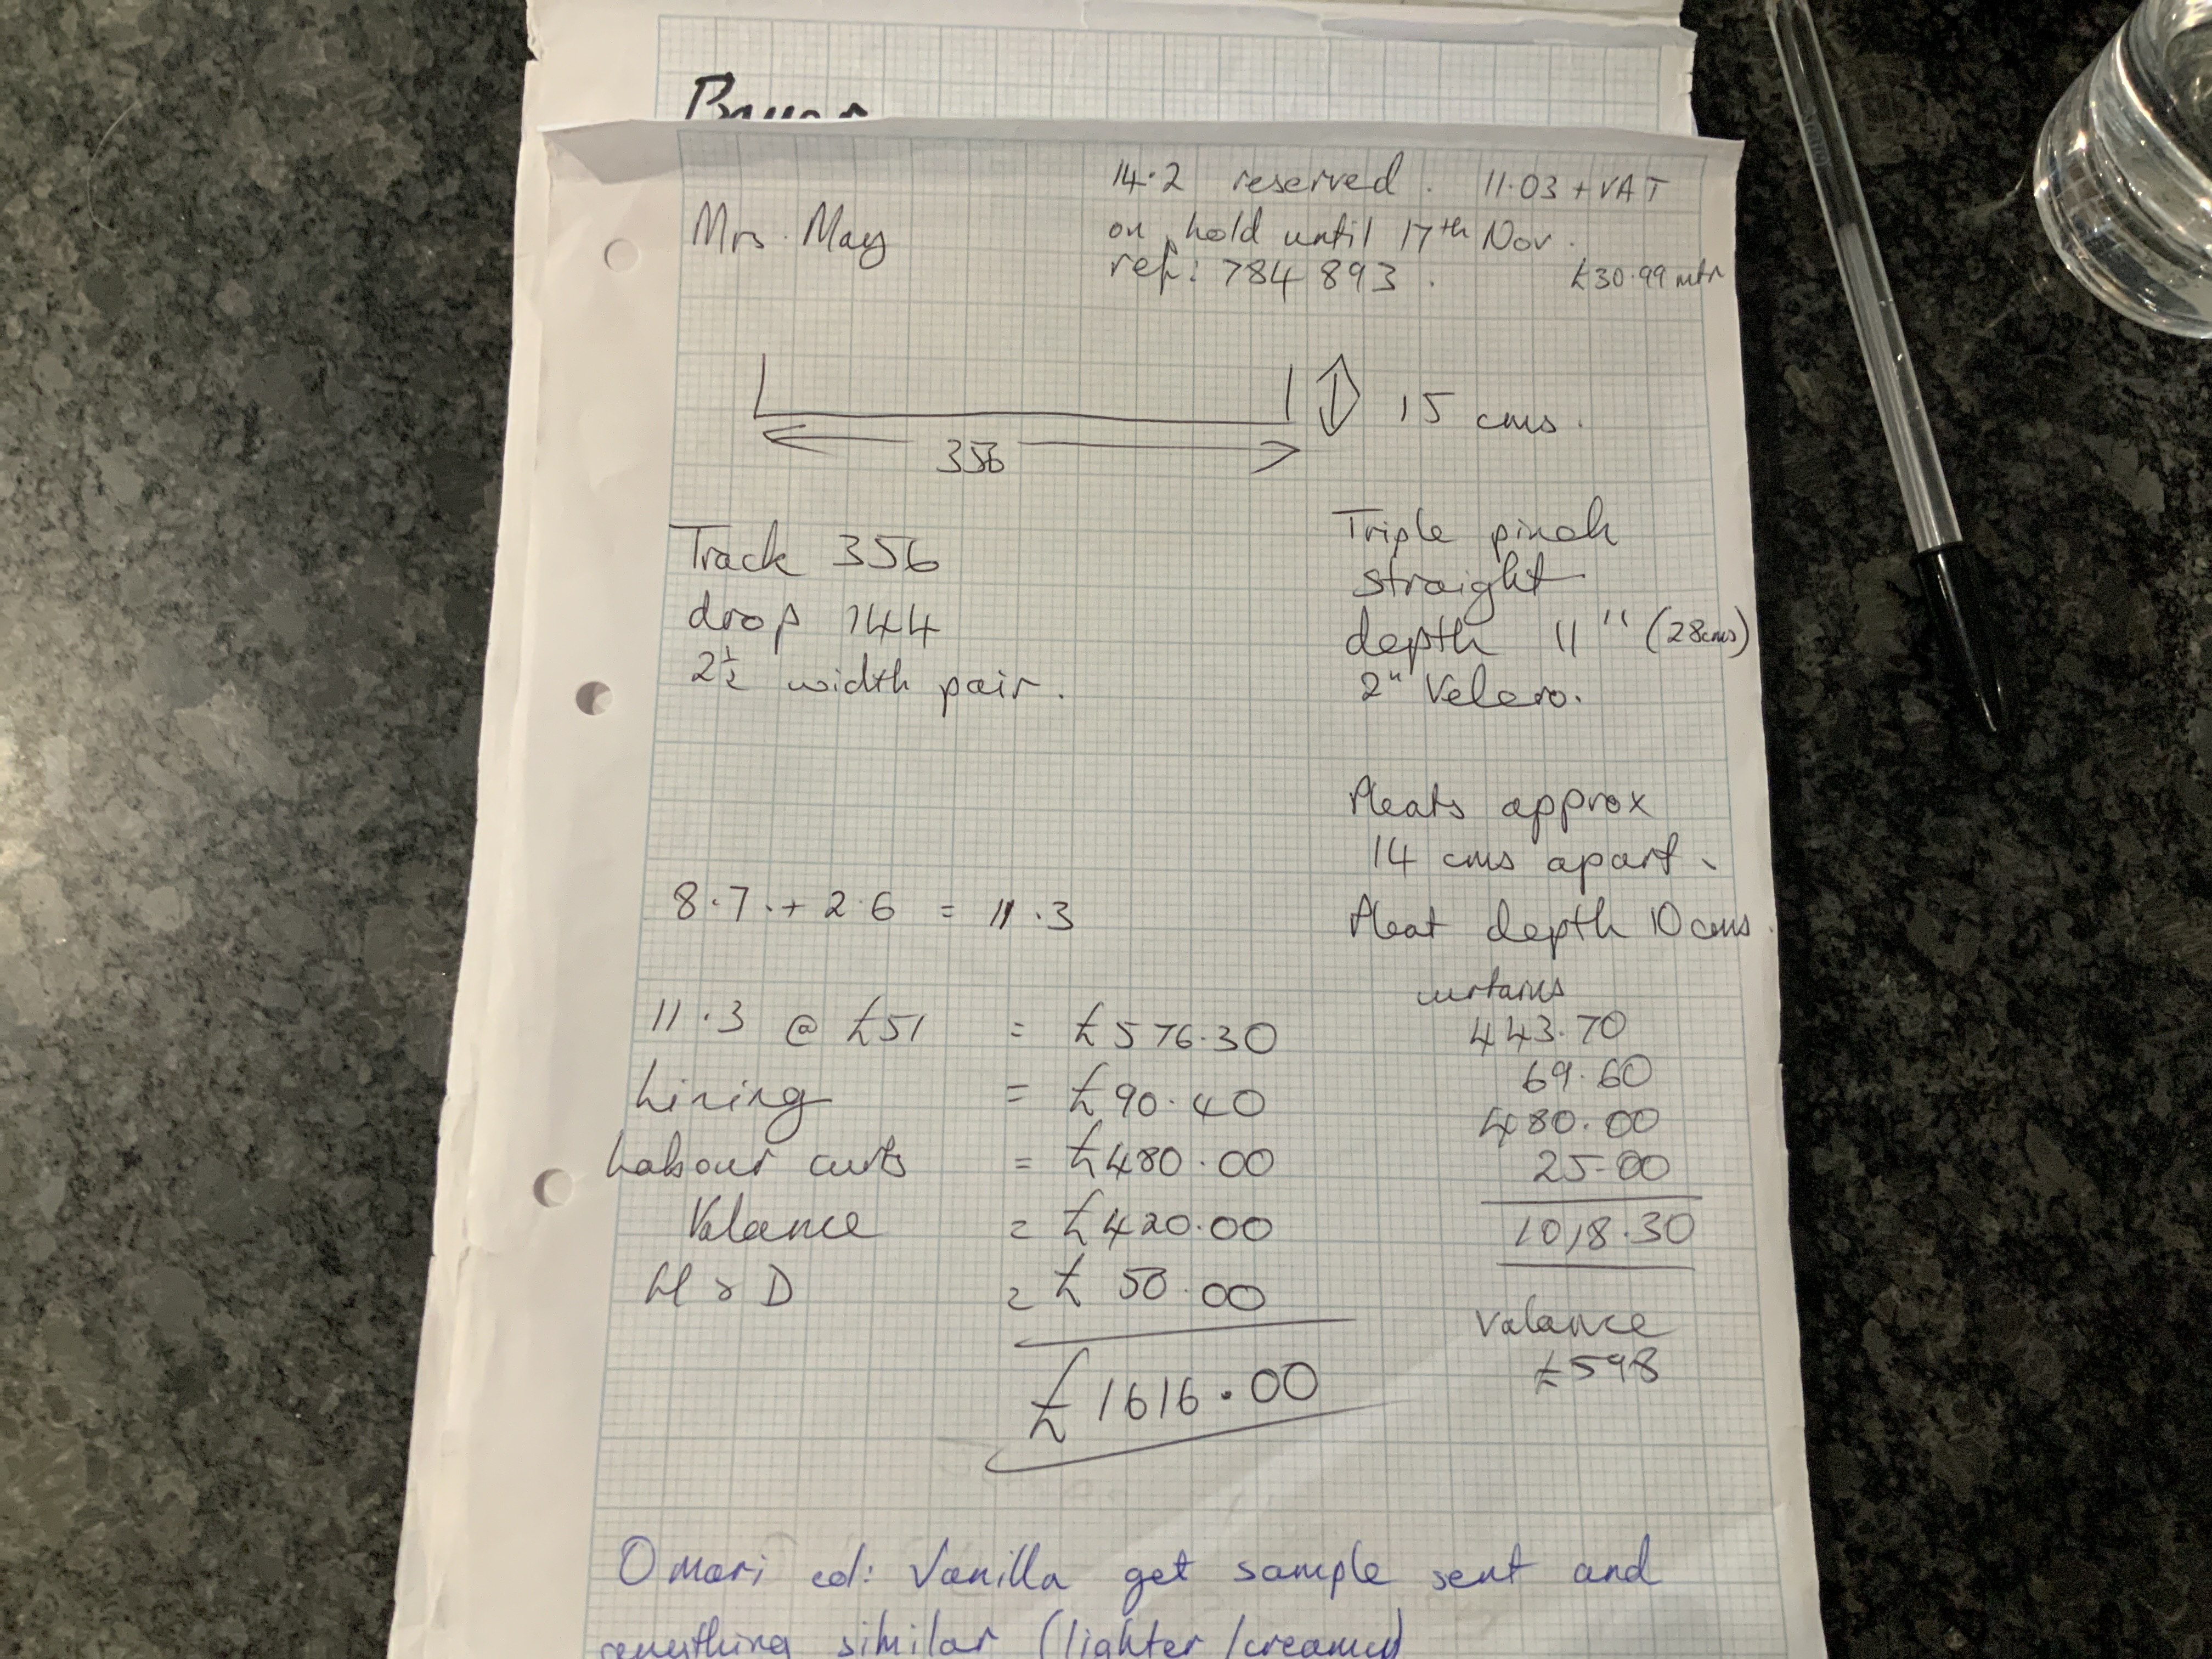 Mrs. May
14.2 reserved. 11.03 + VAT
on hold until 17th Nov.
ref: 784 893.
£30.99 mtr
15 cms.
356
Track 356
drop 144
2½ width pair.
Triple pinch
straight
depth 11" (28cms)
2" Velcro.
Pleats approx
14 cms apart.
Pleat depth 10 cms.
8.7. + 2.6 = 11.3
11.3 @ £51 = £576.30
Lining = £90.40
Labour curts = £480.00
Valance = £420.00
H & D = £ 50.00
£1616.00
curtains
443.70
69.60
480.00
25.00
1018.30
Valance
£598
Omari col: Vanilla get sample sent and
anything similar (lighter/creamy)